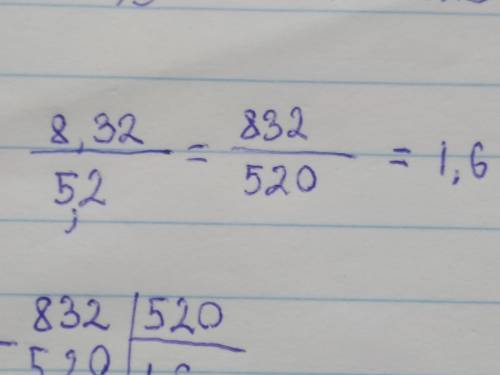 8,32 / 5,2 = 832 / 520 = 1,6
832 | 520
- 520